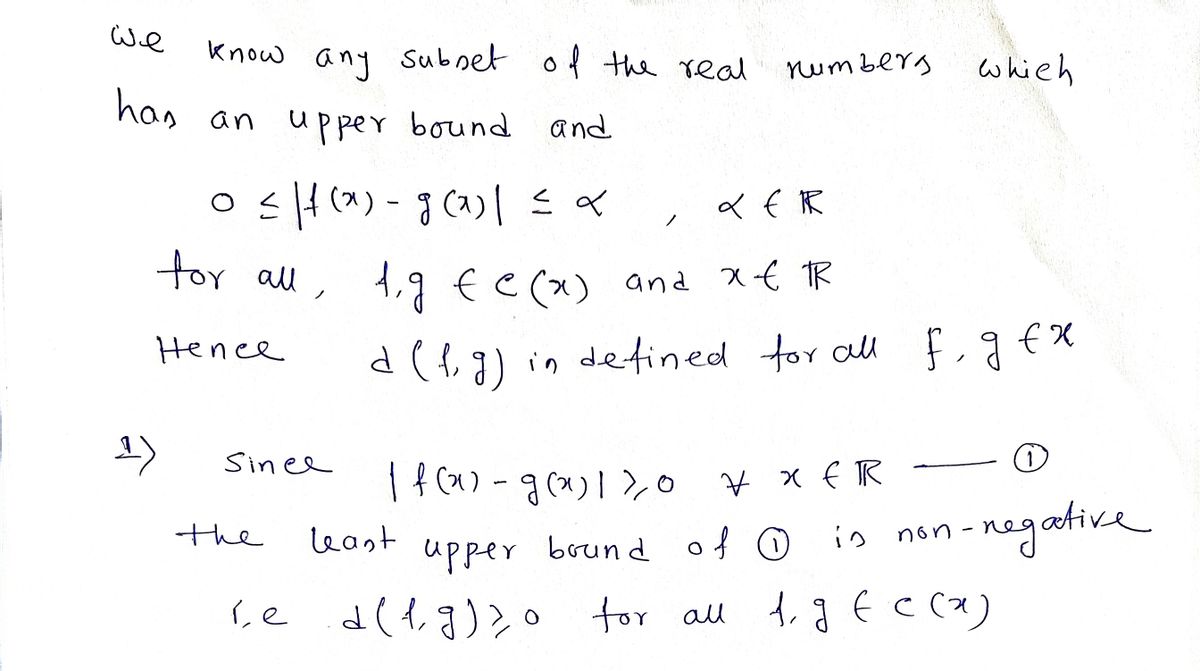 We know any subset of the real numbers which
has an upper bound and
0 ≤ |f(x) - g(x)| ≤ α , α ∈ ℝ
for all, f,g ∈ c(x) and x ∈ ℝ
Hence d(f,g) is defined for all f,g ∈ x
1) Since |f(x) - g(x)| ≥ 0 ∀ x ∈ ℝ —— ①
the least upper bound of ① is non-negative
i.e d(f,g) ≥ 0 for all f,g ∈ c(x)